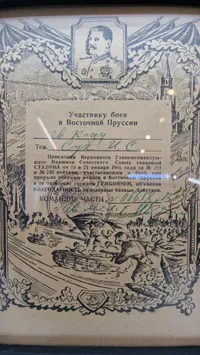 Участнику боев
в Восточной Пруссии
Тов.
Приказами Верховного Главнокомандую-
щего Маршала Советского Союза товарища
СТАЛИНА от 19 и 21 января 1945 года за №
и № войскам, участвовавшим в боях при
прорыве обороны немцев в Восточной Пруссии
и за овладение городом ГУМБИННЕН, объявлена
БЛАГОДАРНОСТЬ за отличные боевые действия.
КОМАНДИР ЧАСТИ